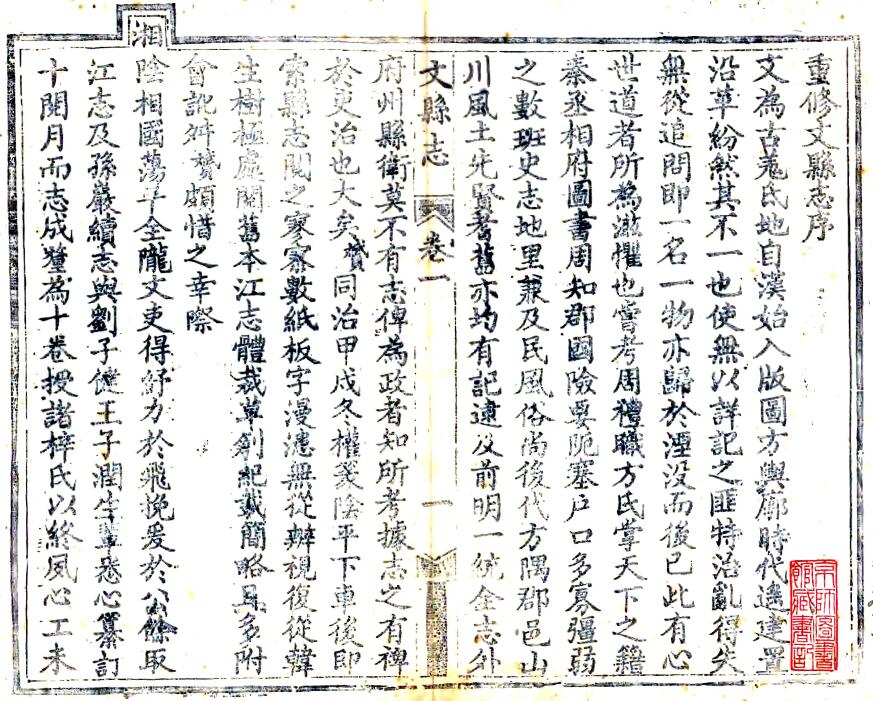 重修文縣志序
文為古氐氏地自漢始入版圖方輿廓時代遙建置
沿革紛然其不一也使無以詳記之匪特治亂得失
無從追問即一名一物亦歸於湮没而後已此有心
世道者所為滋懼也嘗考周禮職方氏掌天下之籍
秦丞相府圖書周知郡國險要阨塞户口多寡彊弱
之數班史志地里兼及民風俗尚後代方隅郡邑山
川風土先賢耆舊亦均有記逮及前明一統全志外
文縣志 卷一 一
府州縣衛莫不有志俾為政者知所考據志之有裨
於吏治也大矣贊同治甲戌冬權篆陰平下車後即
索縣志閱之寥寥數紙板字漫漶無從辨視復從韓
生樹極處閱舊本江志體裁草創紀載簡略且多附
會訛舛贊頗惜之幸際
湘陰相國蕩平全隴文吏得紓力於飛挽爰於公餘取
江志及孫巖續志與劉子健王子潤生輩悉心纂訂
十閱月而志成釐為十卷授諸梓氏以終夙心工未
京師圖書館藏書記